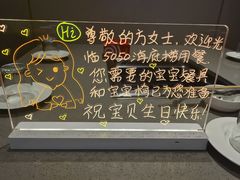 Hi
尊敬的方女士,欢迎光
临5050海底捞用餐
您需要的宝宝餐具
和宝宝椅已为您准备
祝宝贝生日快乐!